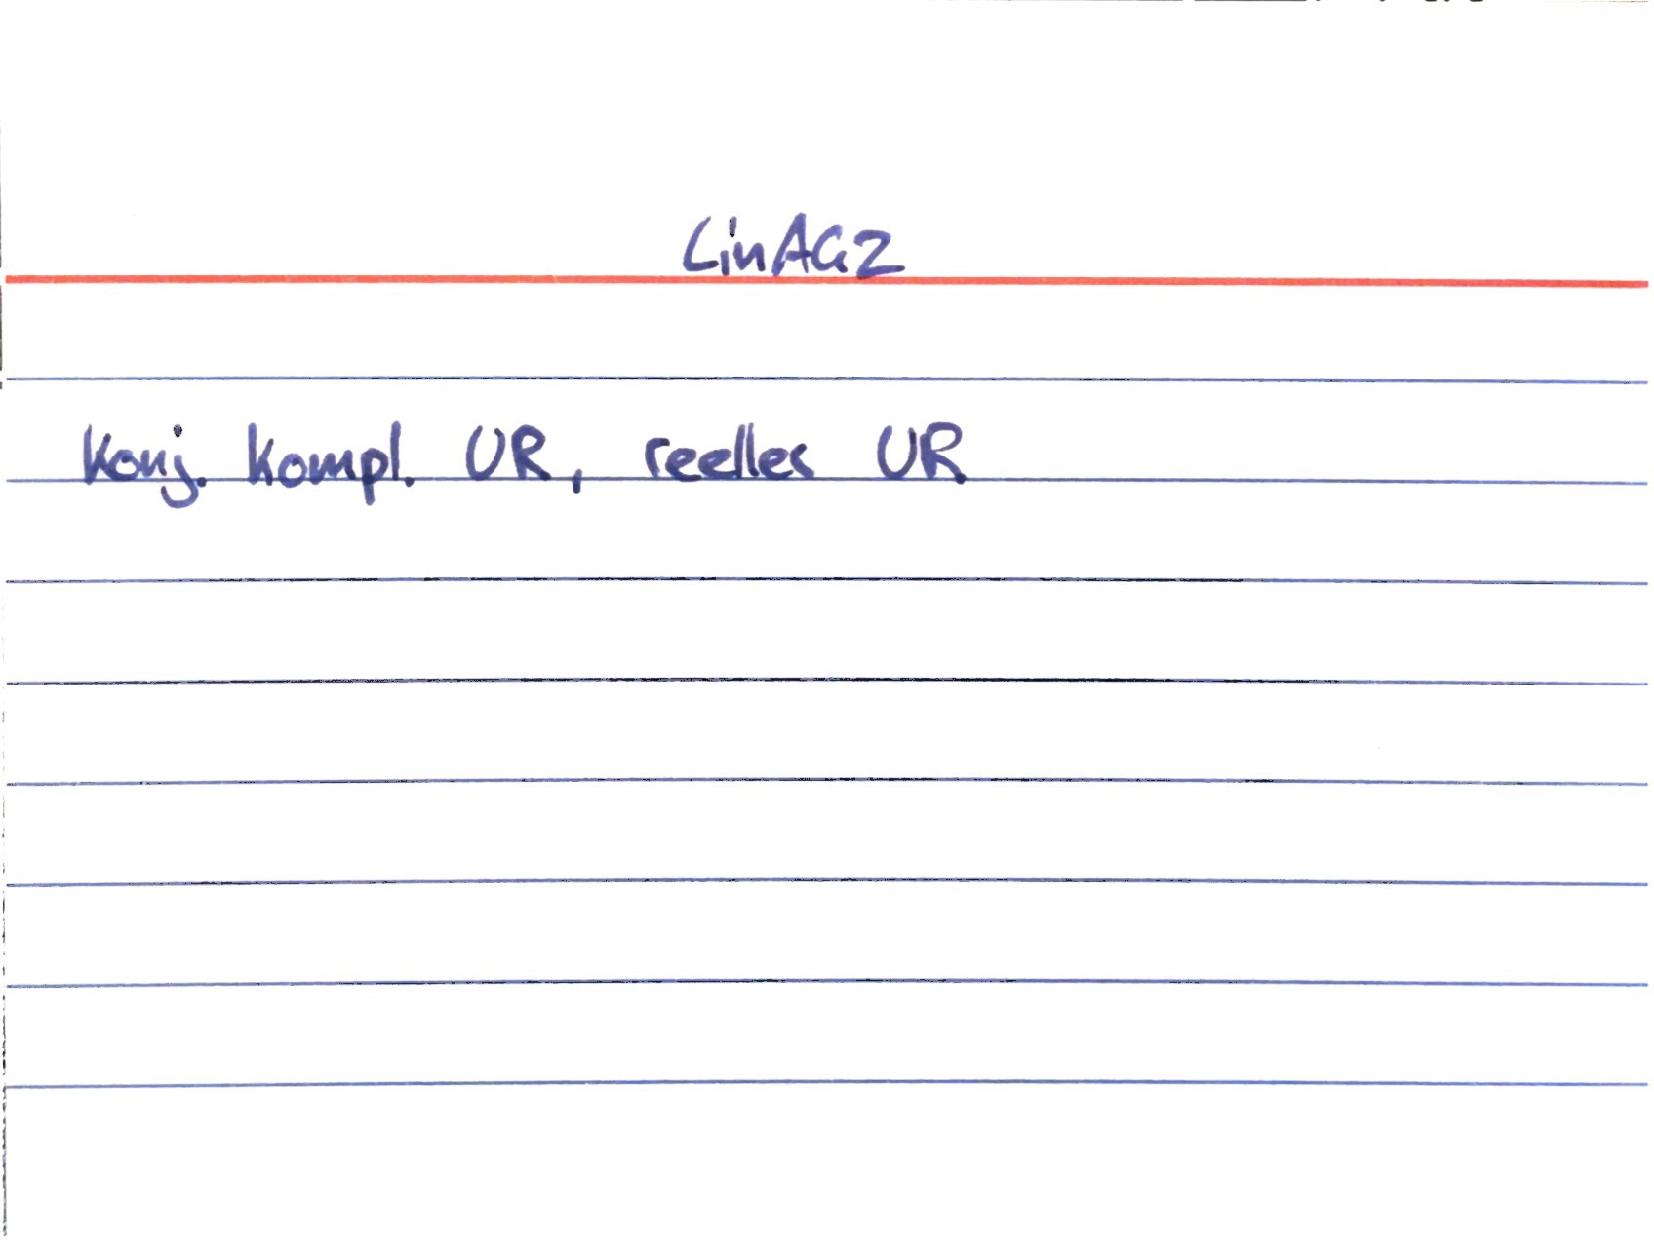 LinAG2
Konj. kompl. UR, reelles UR